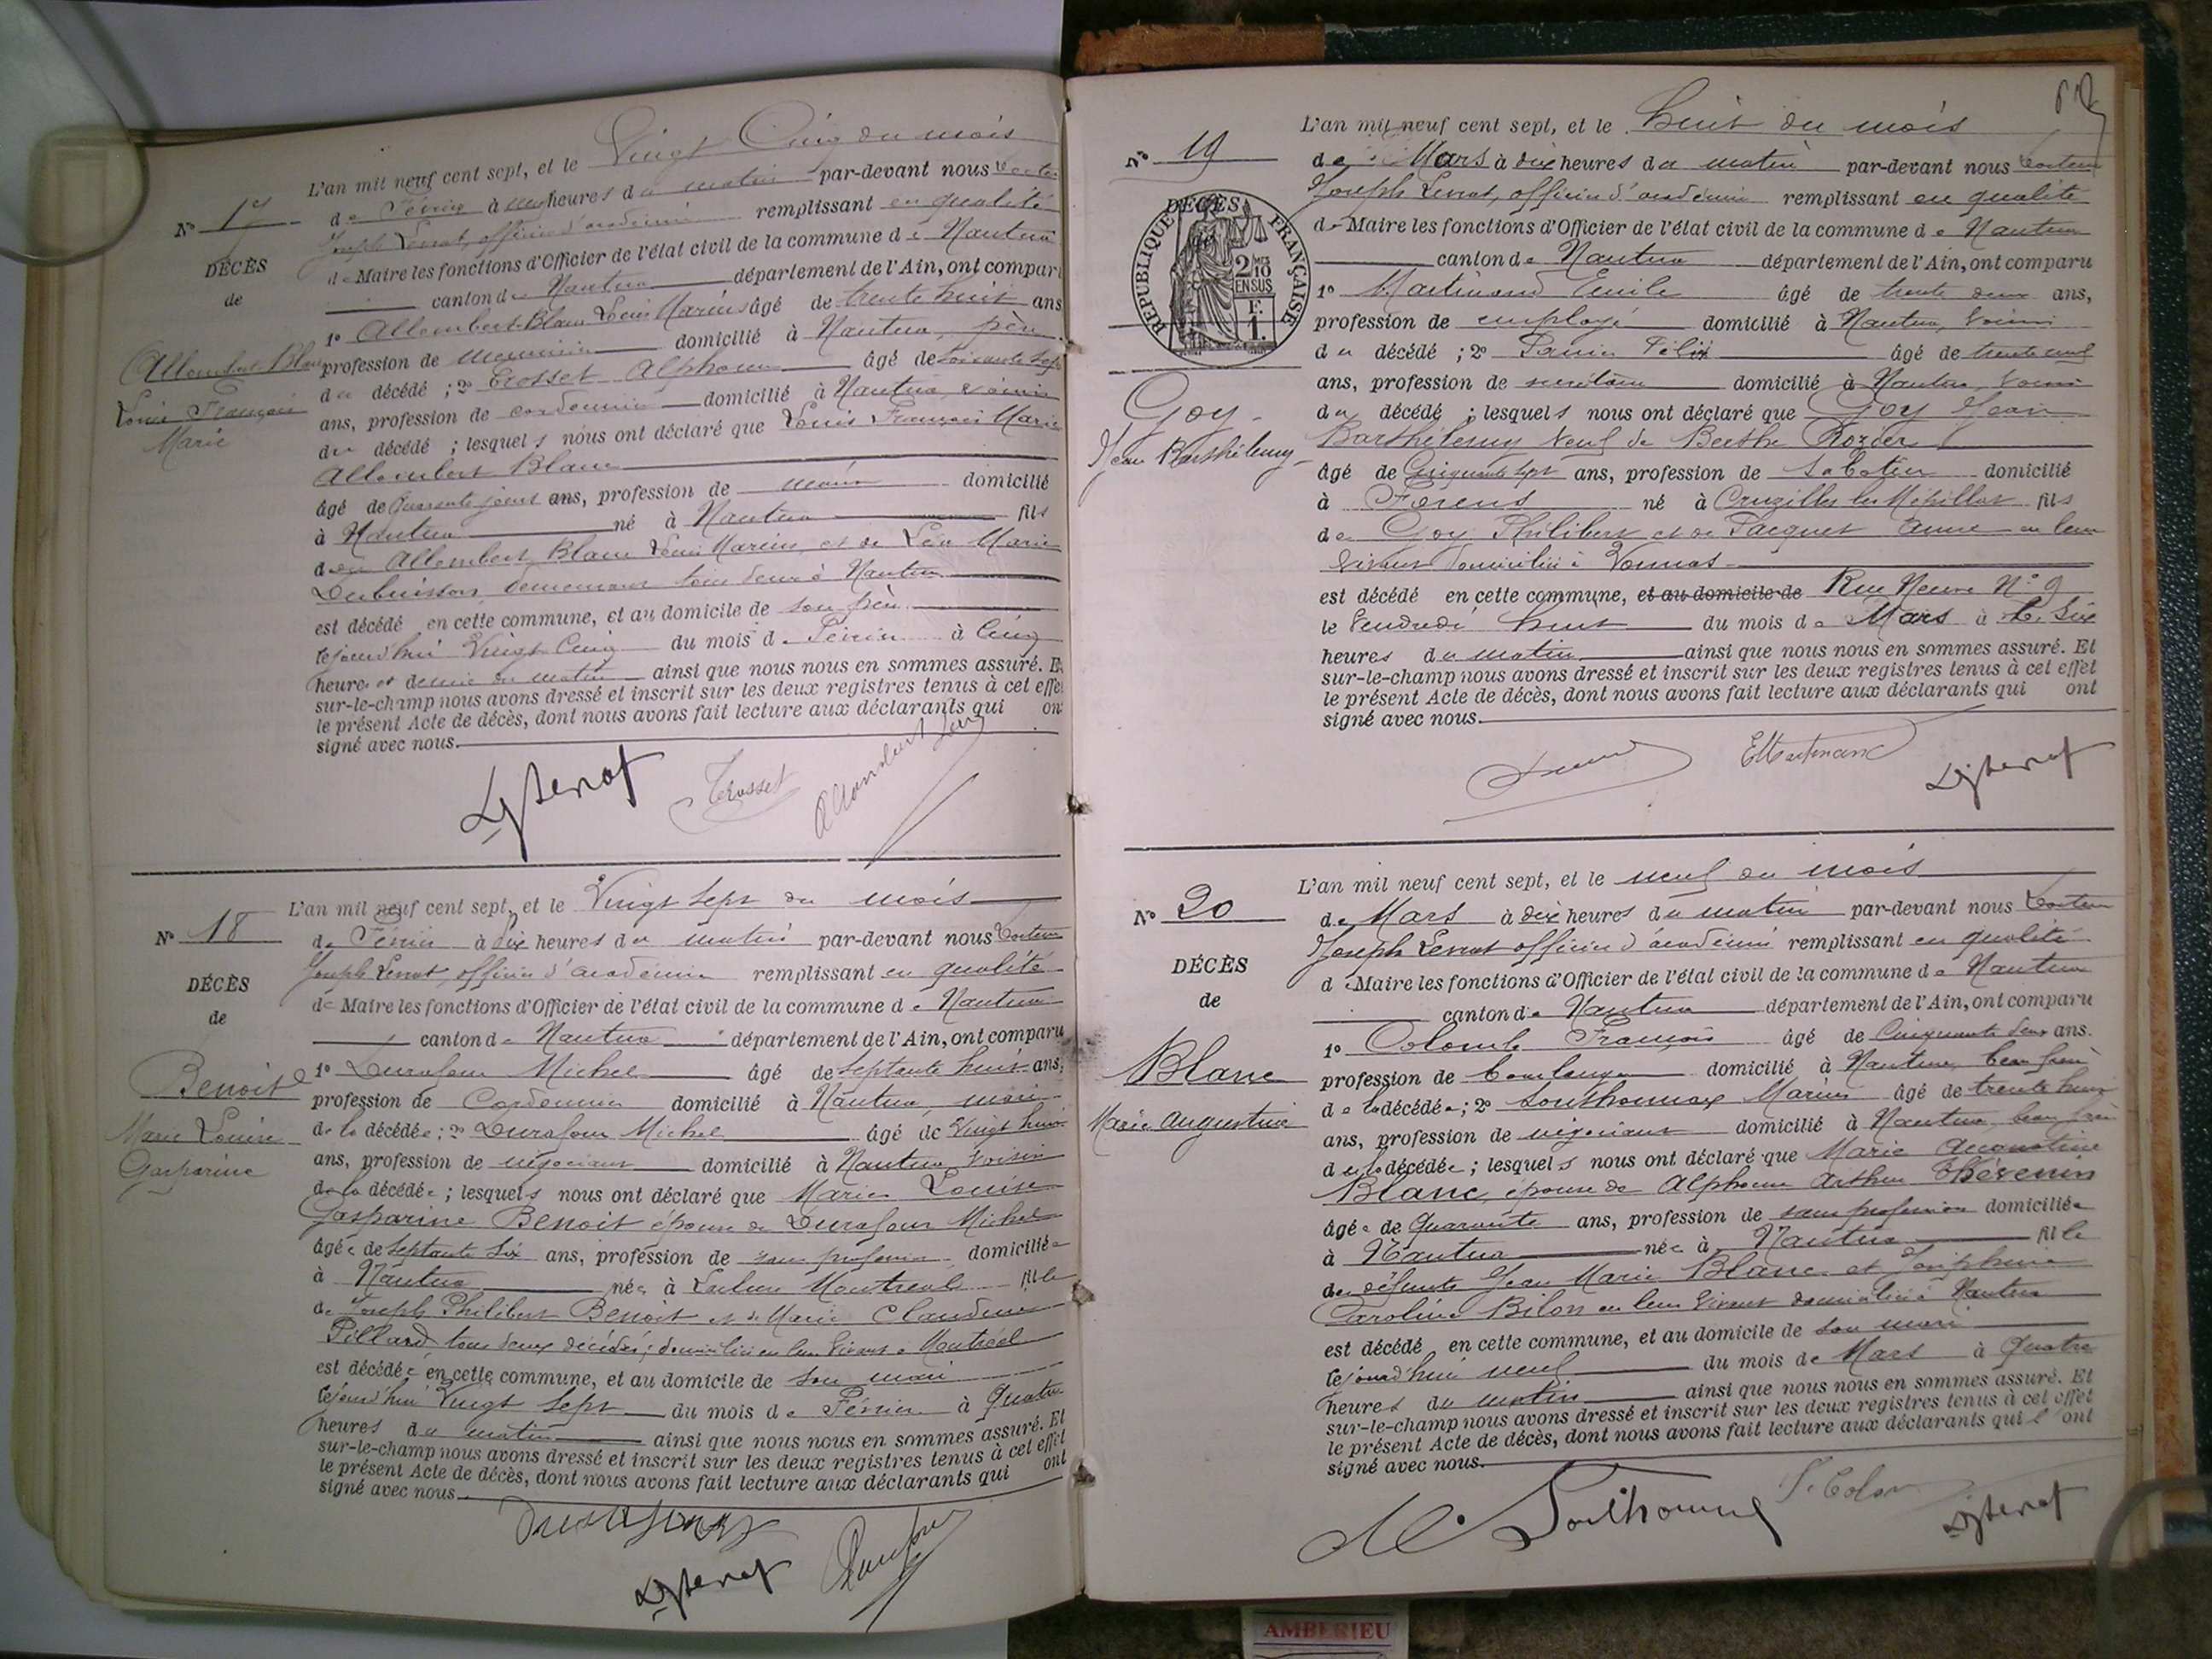 L'an mil neuf cent sept, et le Vingt Cinq du mois
N° 17
de Février à heures du matin par-devant nous Docteur
Joseph Levrat, officier d'académie remplissant en qualité
de Maire les fonctions d'Officier de l'état civil de la commune de Nantua
DÉCÈS
de
canton de Nantua département de l'Ain, ont comparu
1° Allombert-Blanc Louis Marius âgé de trente huit ans
Allombert Blanc
Louis François
Marie
profession de menuisier domicilié à Nantua, père
du décédé ; 2° Crosset Alphonse âgé de soixante sept
ans, profession de cordonnier domicilié à Nantua, voisin
du décédé ; lesquels nous ont déclaré que Louis François Marie
Allombert Blanc
âgé de Quarante jours ans, profession de domicilié
à Nantua né à Nantua fils
de Allombert Blanc Louis Marius et de Léa Marie
Dubuisson, demeurant tous deux à Nantua
est décédé en cette commune, et au domicile de son père
cejourd'hui Vingt Cinq du mois de Février à Cinq
heures et demie du matin ainsi que nous nous en sommes assuré. Et
sur-le-champ nous avons dressé et inscrit sur les deux registres tenus à cet effet
le présent Acte de décès, dont nous avons fait lecture aux déclarants qui ont
signé avec nous.
Crosset Allombert Louis
L'an mil neuf cent sept, et le Vingt Sept du mois
N° 18
de Février à dix heures du matin par-devant nous Docteur
Joseph Levrat, officier d'académie remplissant en qualité
DÉCÈS
de
de Maire les fonctions d'Officier de l'état civil de la commune de Nantua
canton de Nantua département de l'Ain, ont comparu
Benoit
Marie Louise
Gasparine
1° Durafour Michel âgé de septante huit ans,
profession de Cordonnier domicilié à Nantua, mari
de la décédée ; 2° Durafour Michel âgé de Vingt huit
ans, profession de négociant domicilié à Nantua, voisin
de la décédée ; lesquels nous ont déclaré que Marie Louise
Gasparine Benoit épouse de Durafour Michel
âgée de septante six ans, profession de sans profession domiciliée
à Nantua née à Montreal fille
de Joseph Philibert Benoit et de Marie Claudine
Pillard tous deux décédés ; domiciliés en leur vivant à Montréal
est décédée en cette commune, et au domicile de son mari
cejourd'hui Vingt Sept du mois de Février à Quatre
heures du matin ainsi que nous nous en sommes assuré. Et
sur-le-champ nous avons dressé et inscrit sur les deux registres tenus à cet effet
le présent Acte de décès, dont nous avons fait lecture aux déclarants qui ont
signé avec nous.
L'an mil neuf cent sept, et le huit du mois
N° 19
de Mars à dix heures du matin par-devant nous Docteur
Joseph Levrat, officier d'académie remplissant en qualité
de Maire les fonctions d'Officier de l'état civil de la commune de Nantua
DÉCÈS
RÉPUBLIQUE FRANÇAISE
2 10
EN SUS
F.
1.
canton de Nantua département de l'Ain, ont comparu
1° Martinand Emile âgé de trente deux ans,
profession de employé domicilié à Nantua, voisin
du décédé ; 2° Félix âgé de trente neuf
ans, profession de secrétaire domicilié à Nantua, voisin
Goy
Jean Barthélemy
du décédé ; lesquels nous ont déclaré que Goy Jean
Barthélemy veuf de Berthe Rozier
âgé de Cinquante sept ans, profession de Sabotier domicilié
à Forens né à Cruzilles les Mépillat fils
de Goy Philibert et de Pacquet Anne en leur
vivant domiciliés à Vonnas
est décédé en cette commune, et au domicile de Rue Neuve N° 9
le Vendredi huit du mois de Mars à Six
heures du matin ainsi que nous nous en sommes assuré. Et
sur-le-champ nous avons dressé et inscrit sur les deux registres tenus à cet effet
le présent Acte de décès, dont nous avons fait lecture aux déclarants qui ont
signé avec nous.
E Martinand
L'an mil neuf cent sept, et le neuf du mois
N° 20
de Mars à dix heures du matin par-devant nous Docteur
Joseph Levrat officier d'académie remplissant en qualité
DÉCÈS
de
de Maire les fonctions d'Officier de l'état civil de la commune de Nantua
canton de Nantua département de l'Ain, ont comparu
Blanc
Marie Augustine
1° Colomb François âgé de Cinquante deux ans.
profession de boulanger domicilié à Nantua, beau frère
de la décédée ; 2° Southonnax Marius âgé de trente huit
ans, profession de négociant domicilié à Nantua, beau frère
de la décédée ; lesquels nous ont déclaré que Marie Augustine
Blanc, épouse de Alphonse Arthur Thévenin
âgée de Quarante ans, profession de sans profession domiciliée
à Nantua née à Nantua fille
de défunts Jean Marie Blanc et Joséphine
Caroline Bilon en leur vivant domiciliés à Nantua
est décédé en cette commune, et au domicile de son mari
cejourd'hui neuf du mois de Mars à Quatre
heures du matin ainsi que nous nous en sommes assuré. Et
sur-le-champ nous avons dressé et inscrit sur les deux registres tenus à cet effet
le présent Acte de décès, dont nous avons fait lecture aux déclarants qui ont
signé avec nous.
AMBERIEU